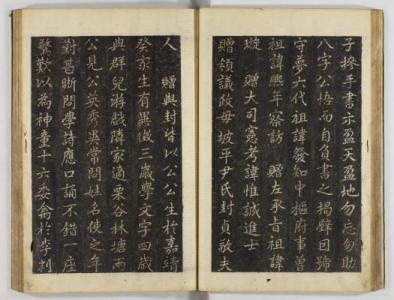 子摻手書示盈天盈地勿忘勿助
八字公悟而自負書之揭壁因號
守夢六代祖諱發知中樞府事曾
祖諱熙年察訪 贈左承旨祖諱
璇 贈大司憲考諱惟誠進士
贈領議政母坡平尹氏封貞敬夫
人 贈與封皆以公公生於嘉靖
癸亥生有異徵三歲學文字四歲
與群兒游戲隣家適栗谷林塘兩
公見公英秀異常問姓名使之年
對甚晰問學詩應口誦不錯一座
驚歎以為神童十六委禽於李判